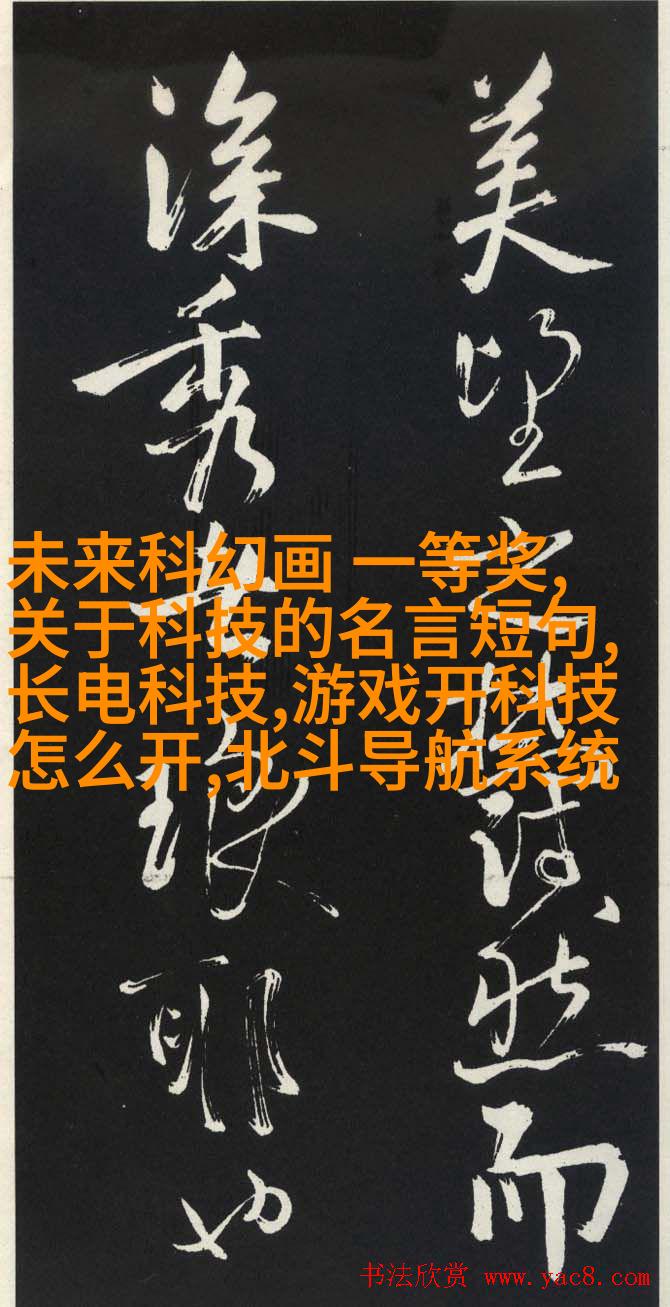 美望之蔚然而
深秀者琅耶也
未来科幻画 一等奖,
关于科技的名言短句,
长电科技,游戏开科技
怎么开,北斗导航系统
书法欣赏 www.yac8.com